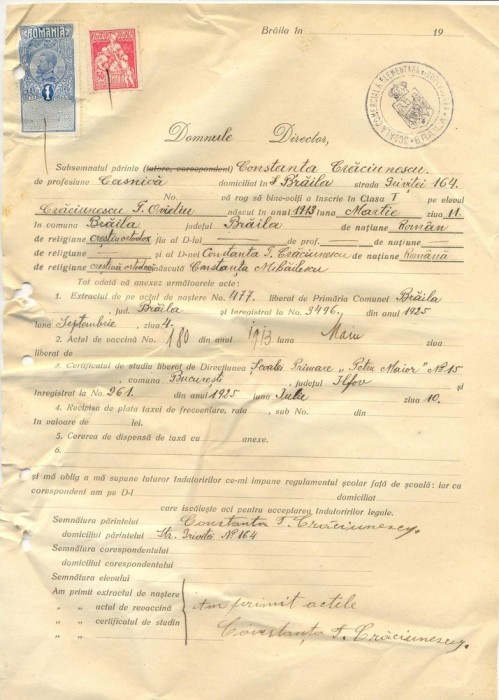 ROMANIA
1
Brăila In 19
SCOALA COMERCIALA ELEMENTARA BRAILA
Domnule Director,
Subsemnatul părinte (tutore, corespondent) Constanta Crăciunescu
de profesiune Casnică domiciliat in Brăila strada Griviței 164
No. vă rog să bine-voiți a inscrie in Clasa I pe elevul
Crăciunescu T. Ovidiu născut in anul 1913 luna Martie ziua 11
in comuna Brăila județul Brăila de națiune Român
de religiune creștin ortodox fiu al D-lui de prof. de națiune
de religiune și al D-nei Constanta T. Crăciunescu de națiune Română
de religiune creștină ortodoxă născută Constanta Mihăilescu
Tot odată vă anexez armătoarele acte:
1. Extractul de pe actul de naștere No. 477. liberat de Primăria Comunei Brăila
, jud. Brăila și inregistrat la No. 3496. din anul 1925
luna Septembrie, ziua 4.
2. Actul de vaccină No. 180 din anul 1913 luna Maiu ziua
liberat de
3. Certificatul de studiu liberat de Direcțiunea Scoalei Primare „Petru Maior" No 15
, comuna București, județul Ilfov și
inregistrat la No. 261. din anul 1925 luna Iulie ziua 10.
4. Recipisa de plata taxei de frecventare, rata , sub No. din
in valoare de lei.
5. Cererea de dispensă de taxă cu anexe.
6.
și mă oblig a mă supune tuturor indatoririlor ce-mi impune regulamentul școlar față de școală: iar ca
corespondent am pe D-l domiciliat
care iscălește aci pentru acceptarea indatoririlor legale.
Semnătura părintelui Constanta T. Crăciunescu.
domiciliul părintelui Str. Griviței No 164
Semnătura corespondentului
domiciliul corespondentului
Semnătura elevului
Am primit extractul de naștere
„ „ actul de revaccină Am primit actele
„ „ certificatul de studiu
„ „ Constanța T. Crăciunescu.